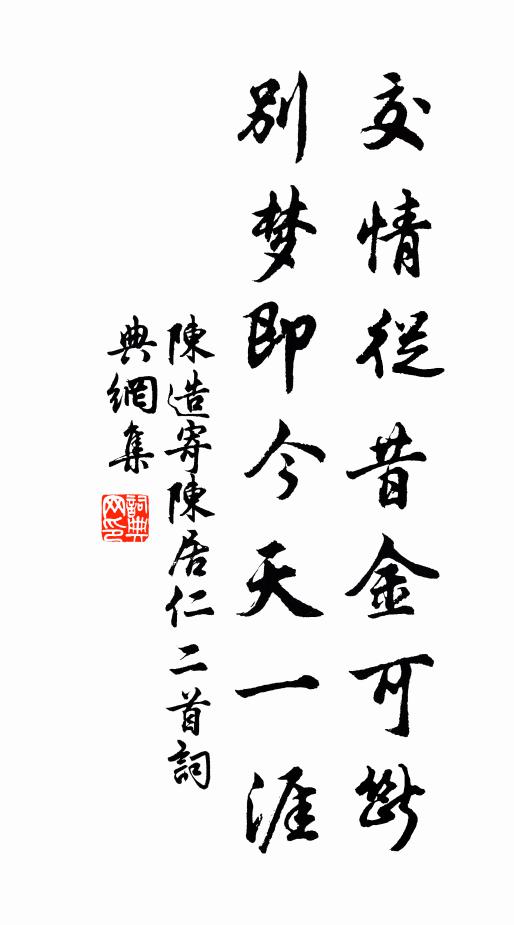 交情從昔金可斷
别梦即今天一涯
陳造寄陳居仁二首詞
典網集
詞典网印